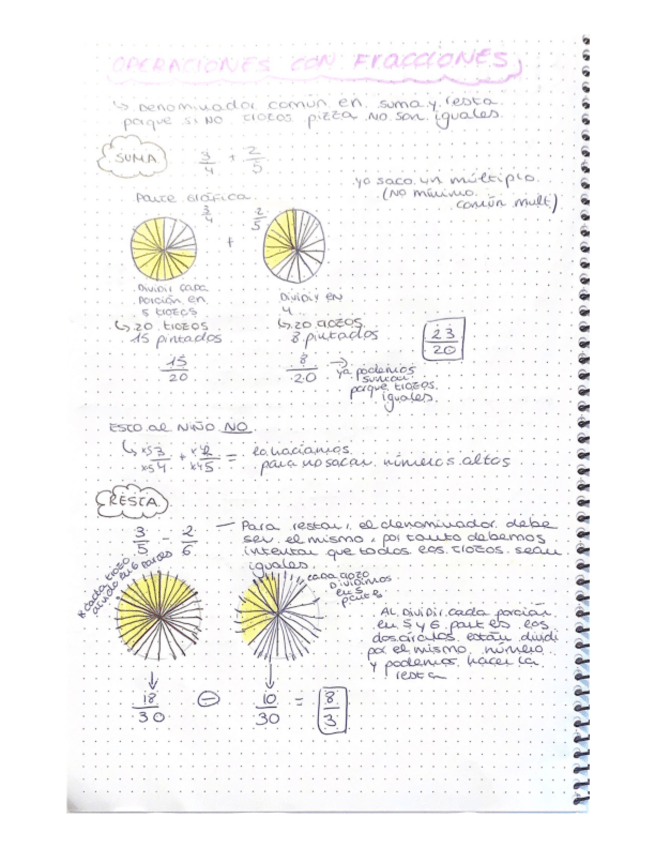 OPERACIONES CON FRACCIONES
↳ Denominador común en suma y resta
porque si NO trozos pizza NO son iguales.
SUMA
3/4 + 2/5
yo saco un múltiplo
(NO mínimo
común mult)
Parte gráfica
3/4
2/5
+
Dividir cada
porción en
5 trozos
Dividir en
4
↳ 20 trozos
15 pintados
↳ 20 trozos
8 pintados
23/20
15/20
8/20 → ya podemos
sumar
porque trozos
iguales.
ESTO al NIÑO NO
↳ x5 3/x5 4 + x4 2/x4 5 = lo hacíamos
para no sacar números altos
RESTA
3/5 - 2/6
— Para restar, el denominador debe
ser el mismo, por tanto debemos
intentar que todos los trozos sean
iguales
* cada trozo
divido en 6 partes
cada trozo
Dividimos
en 5
partes
Al Dividir cada porción
en 5 y 6 partes los
dos círculos están dividi
por el mismo número
y podemos hacer la
resta
18/30 ⊖ 10/30 = 8/3